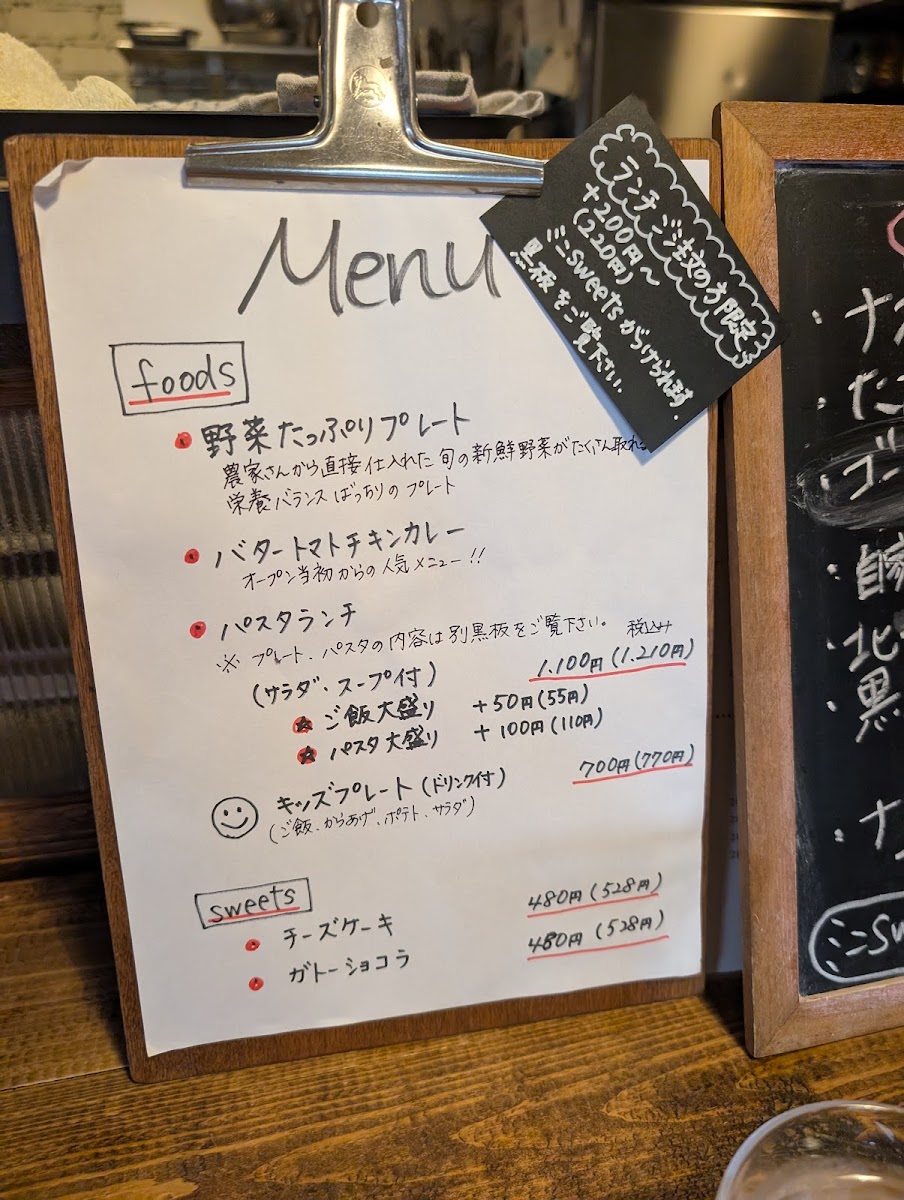 Menu
ランチご注文の方限定
+200円〜
(220円)
ミニsweetsがつけられます.
黒板をご覧下さい.
foods
野菜たっぷりプレート
農家さんから直接仕入れた旬の新鮮野菜がたくさん取れる
栄養バランスばっちりのプレート
バタートマトチキンカレー
オープン当初からの人気メニュー!!
パスタランチ
※ プレート、パスタの内容は別黒板をご覧下さい。 税込み
(サラダ・スープ付) 1.100円(1.210円)
★ ご飯大盛り +50円(55円)
★ パスタ大盛り +100円(110円)
キッズプレート(ドリンク付) 700円(770円)
(ご飯、からあげ、ポテト、サラダ)
sweets
チーズケーキ 480円(528円)
ガトーショコラ 480円(528円)
・ナ
・た
・自家
・北
・黒
・ナ
ミニsw